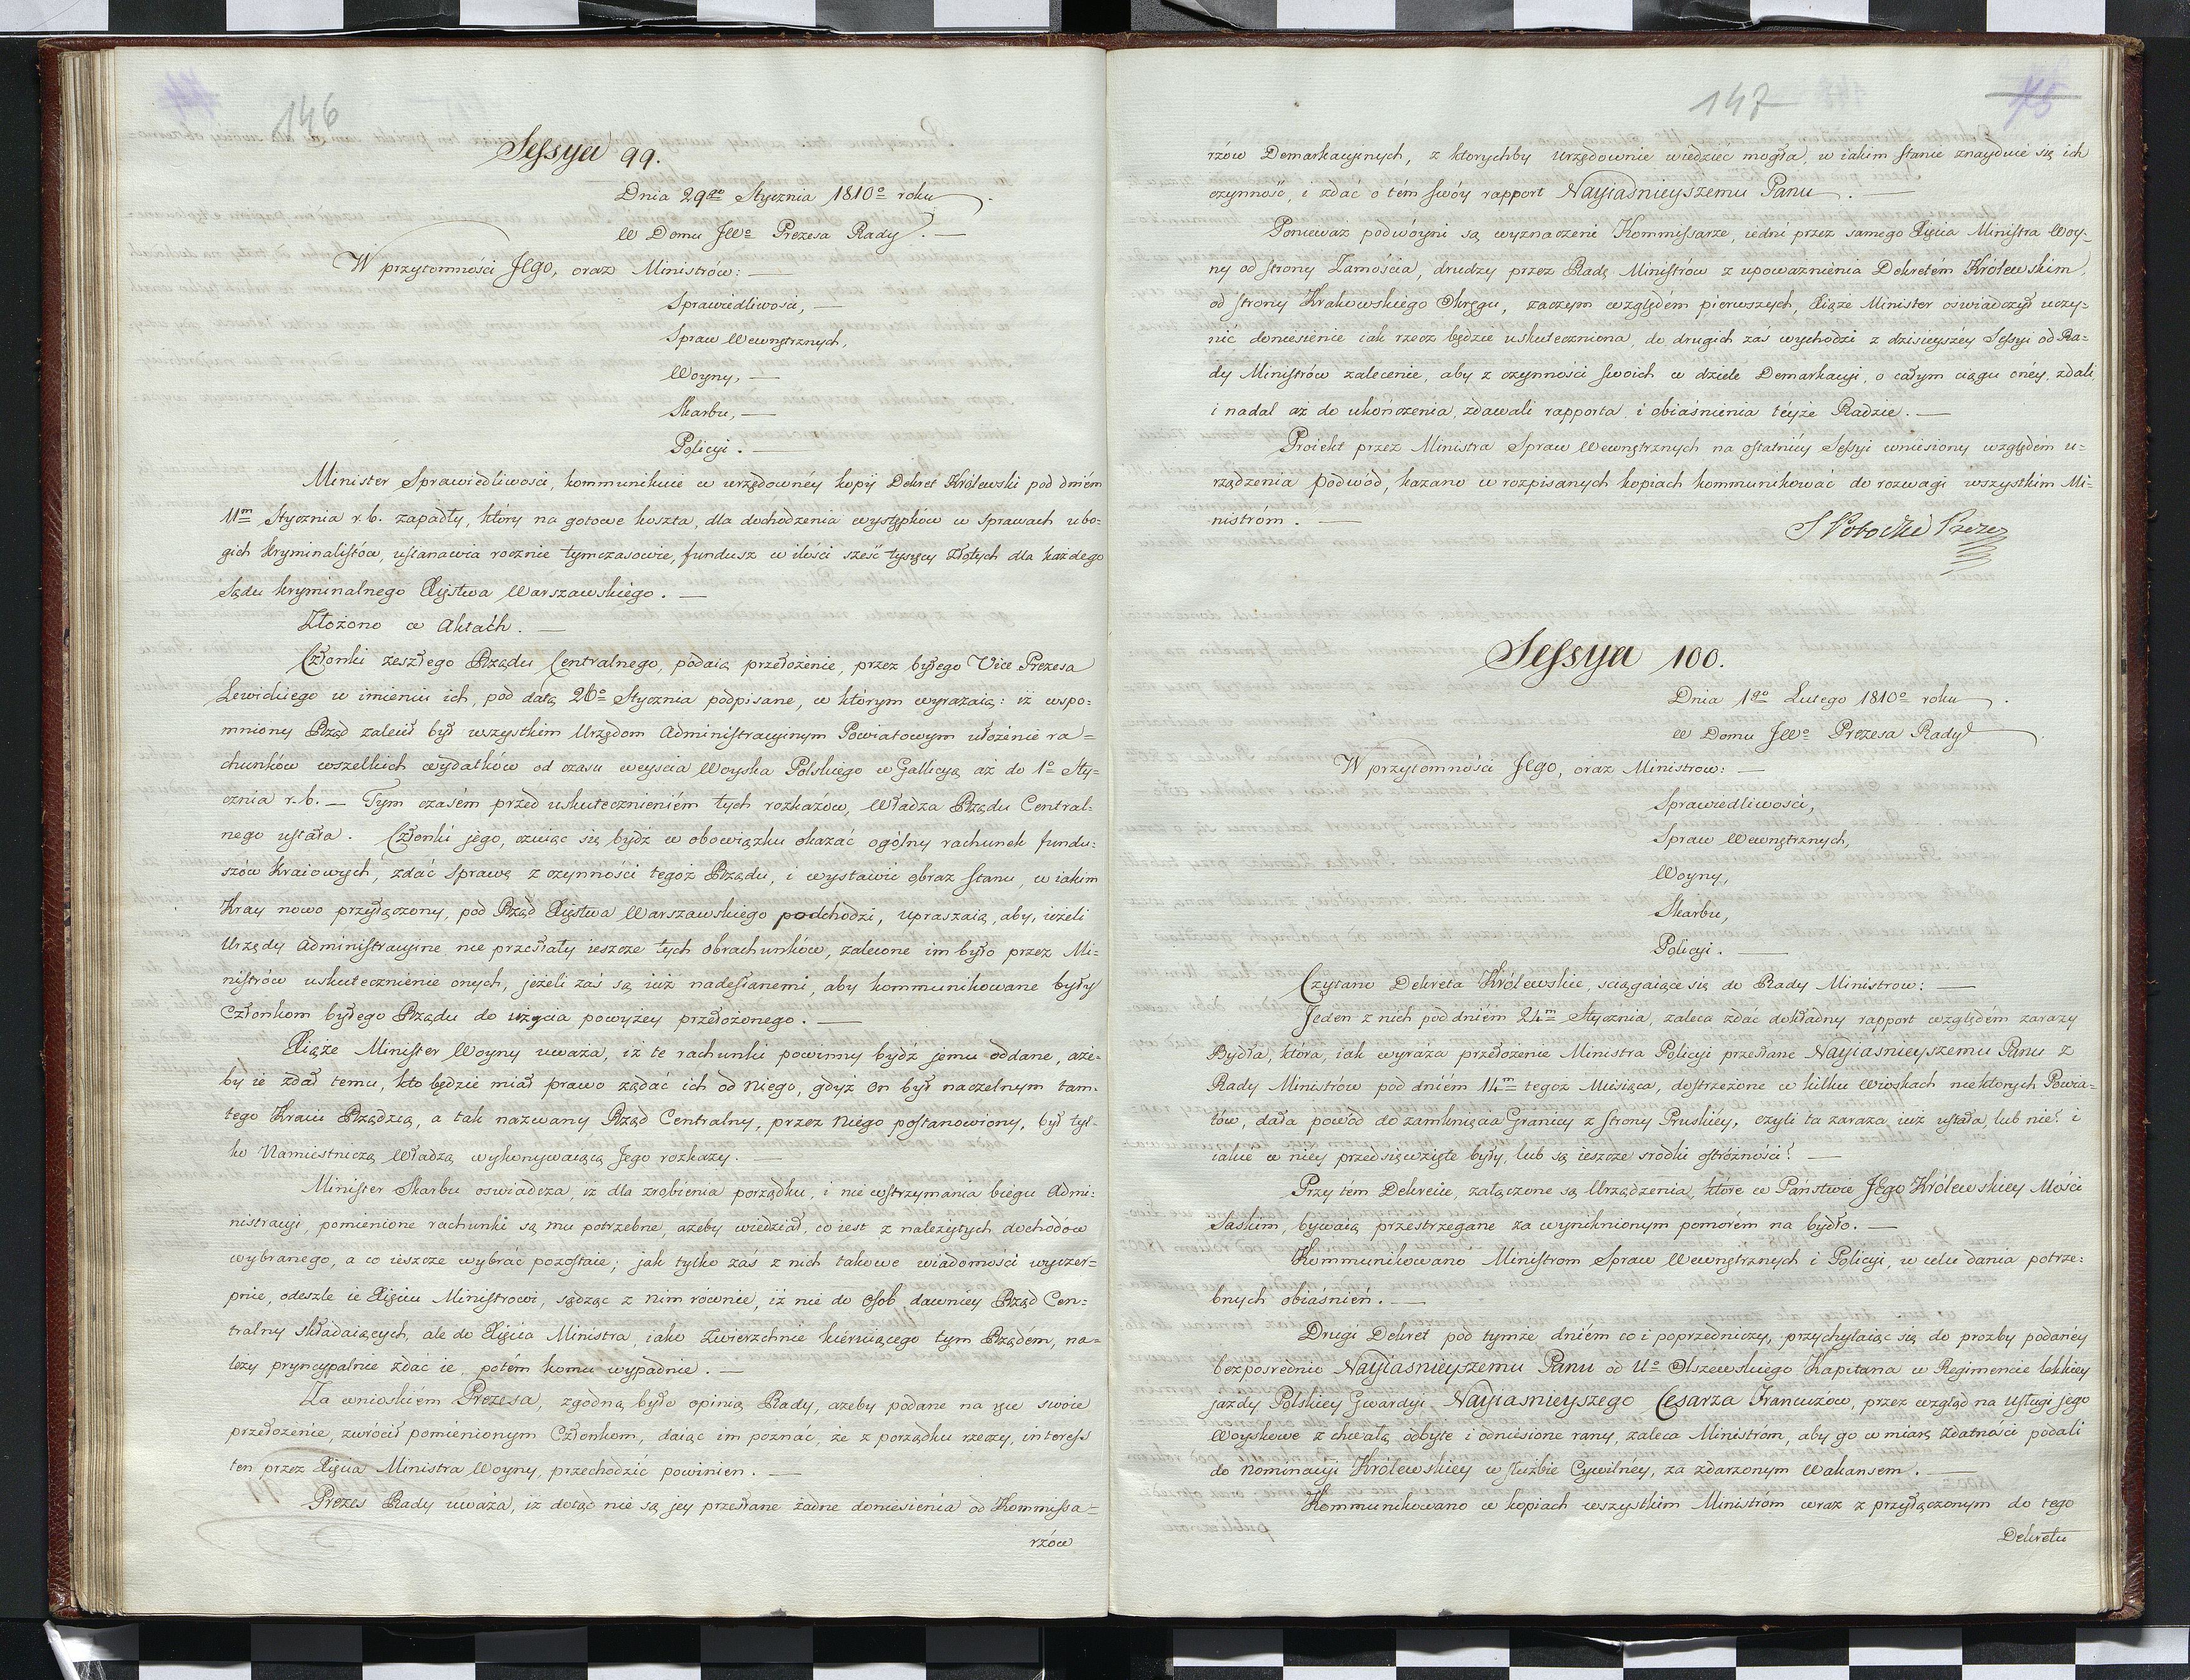 146
Sessya 99.
Dnia 29go Stycznia 1810o roku
W Domu JWo Prezesa Rady. —
W przytomności Jego, oraz Ministrów: —
Sprawiedliwości, —
Spraw Wewnętrznych,
Woyny, —
Skarbu, —
Policyi. —
Minister Sprawiedliwości, kommunikuie w urzędownéy kopij Dekret Królewski pod dniém
11m Stycznia r. b. zapadły, który na gotowe koszta, dla dochodzenia występków w sprawach ubo=
gich kryminalistów, ustanawia rocznie tymczasowie, fundusz w ilości sześć tysięcy Złotych dla każdego
Sądu kryminalnego Xięstwa Warszawskiego. —
Złożono w Aktach. —
Członki zeszłego Rządu Centralnego, podaią przełożenie, przez byłego Vice Prezesa
Lewickiego w imieniu ich, pod datą 26o Stycznia podpisane, w którym wyrażaią: iż wspo=
mniony Rząd zalecił był wszystkim Urzędom Administracyinym Powiatowym ułożenie ra=
chunków wszelkich wydatków od czasu weyscia Woyska Polskiego w Gallicyą aż do 1o Sty=
cznia r. b. — Tym czasém przed uskutecznieniém tych rozkazów, Władza Rządu Central=
nego ustała. Członki jego, czuiąc się bydź w obowiązku okazać ogólny rachunek fundu=
szów Kraiowych, zdać sprawę z czynności tegoż Rządu, i wystawić obraz stanu, w iakim
Kray nowo przyłączony, pod Rząd Xięstwa Warszawskiego podchodzi, upraszaią, aby, ieżeli
Urzędy Administracyine nie przesłały ieszcze tych obrachunków, zalecone im było przez Mi=
nistrów uskutecznienie onych, jeżeli zaś są iuż nadesłanemi, aby kommunikowane były
Członkom byłego Rządu do użycia powyżey przełożonego. —
Xiąże Minister Woyny uważa, iż te rachunki powinny bydź jemu oddane, aże=
by ie zdał temu, kto będzie miał prawo żądać ich od Niego, gdyż On był naczelnym tam=
tego Kraiu Rządzcą, a tak nazwany Rząd Centralny, przez Niego postanowiony, był tyl=
ko Namiestniczą Władzą wykonywaiącą Jego rozkazy. —
Minister Skarbu oswiadcza, iż dla zrobienia porządku, i nie wstrzymania biegu Admi=
nistracyi, pomienione rachunki są mu potrzebne, ażeby wiedział, co iest z należytych dochodów
wybranego, a co ieszcze wybrać pozostaie; jak tylko zaś z nich takowe wiadomości wyczer=
pnie, odeszle ie Xięciu Ministrowi, sądząc z nim równie, iż nie do Osob dawniey Rząd Cen=
tralny składaiących, ale do Xięcia Ministra, iako Zwierzchnie kieruiącego tym Rządém, na=
leży pryncypalnie zdać ie, potém komu wypadnie. —
Za wnioskiém Prezesa, zgodną było opinią Rady, ażeby podane na ręce swoie
przełożenie, zwrócił pomienionym Członkom, daiąc im poznać, że z porządku rzeczy, interess
ten przez Xięcia Ministra Woyny, przechodzić powinien. —
Prezes Rady uważa, iż dotąd nie są jey przesłane żadne doniesienia od Kommissa=
rzów
147
75
rzów Demarkacyinych, z ktorychby urzędownie wiedzieć mogła, w iakim stanie znayduie się ich
czynność, i zdać o tém swóy rapport Nayiaśnieyszemu Panu. —
Ponieważ podwóyni są wyznaczeni Kommissarze, iedni przez samego Xięcia Ministra Woy=
ny od strony Zamościa, drudzy przez Radę Ministrów z upoważnienia Dekretém Królewskim,
od strony Krakowskiego Okręgu, zaczym względém pierwszych, Xiąże Minister oświadczył uczy=
nić doniesienie iak rzecz będzie uskuteczniona, do drugich zaś wychodzi z dzisieyszéy Sessyi od Ra=
dy Ministrów zalecenie, aby z czynności swoich w dziele Demarkacyi, o całym ciągu onéy, zdali
i nadal aż do ukończenia, zdawali rapporta i obiaśnienia téyże Radzie. —
Proiekt przez Ministra Spraw Wewnętrznych na ostatniéy Sessyi wniesiony względém u=
rządzenia podwód, kazano w rozpisanych kopiach kommunikować do rozwagi wszystkim Mi=
nistróm. —
S Potocki Prezes
Sessya 100.
Dnia 1go Lutego 1810o roku
W Domu JWo Prezesa Rady
W przytomności Jego, oraz Ministrow: —
Sprawiedliwości,
Spraw Wewnętrznych,
Woyny,
Skarbu,
Policyi. —
Czytano Dekreta Królewskie, sciągaiące się do Rady Ministrow: —
Jeden z nich pod dniém 24m Stycznia, zaleca zdać dokładny rapport względém zarazy
Bydła, która, iak wyraża przełożenie Ministra Policyi przesłane Nayiasnieyszemu Panu z
Rady Ministrów pod dniém 14m tegoż Miesiąca, dostrzeżone w kilku Wioskach niektorych Powia=
tów, dała powód do zamknięcia Granicy z strony Pruskiéy, czyli ta zaraza iuż ustała, lub nie? i
iakie w niey przedsięwzięte były, lub są ieszcze srodki ostróżności? —
Przy tém Dekrecie, załączone są Urządzenia, które w Państwie Jego Królewskiey Mości
Saskim, bywaią przestrzegane za wyniknionym pomorém na bydło. —
Kommunikowano Ministrom Spraw Wewnętrznych i Policyi, w celu dania potrze=
bnych obiaśnień. —
Drugi Dekret pod tymże dniém co i poprzedniczy, przychylaiąc się do prozby podanéy
bezposrednio Nayiasnieyszemu Panu od Uo Olszewskiego Kapitana w Regimencie lekkiey
jazdy Polskiey Gwardyi Nayiasnieyszego Cesarza Francuzów, przez wzgląd na usługi jego
Woyskowe z chwałą odbyte i odniesione rany, zaleca Ministróm, aby go w miarę zdatności podali
do nominacyi Królewskiey w służbie Cywilnéy, za zdarzonym Wakansem. —
Kommunikowano w kopiach wszystkim Ministróm wraz z przyłączonym do tego
Dekretu